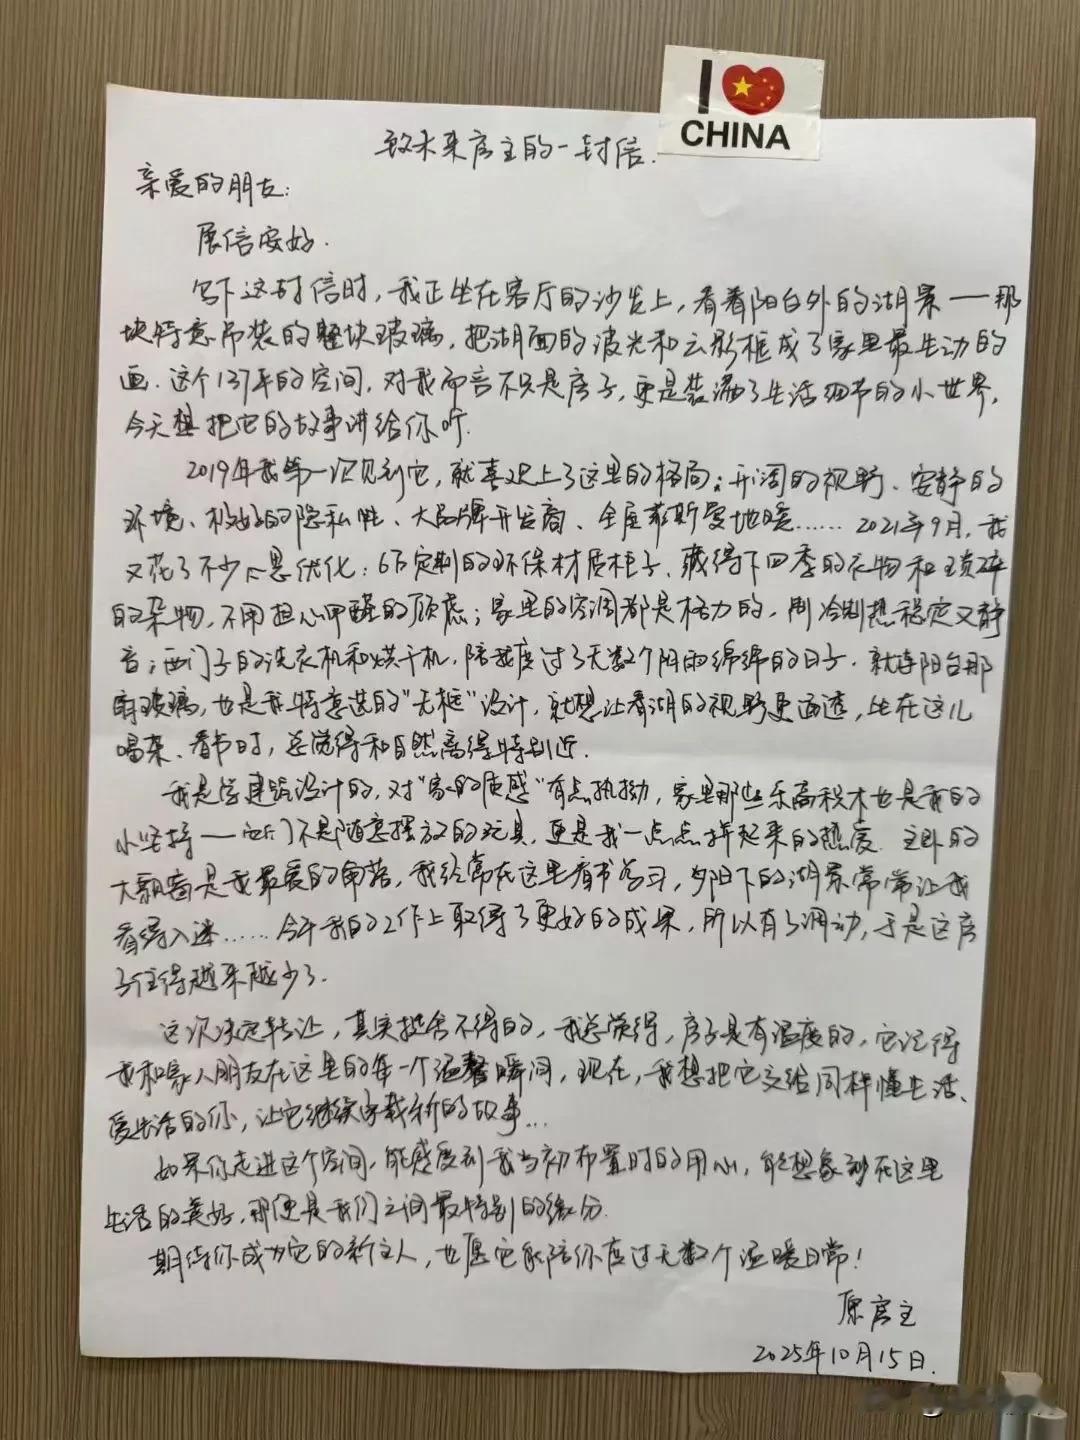 I ❤ CHINA
致未来房主的一封信.
亲爱的朋友:
展信安好.
写下这封信时,我正坐在客厅的沙发上,看着阳台外的湖景——那
块特意吊装的整块玻璃,把湖面的波光和云影框成了家里最生动的
画.这个137平的空间,对我而言不只是房子,更是装满了生活细节的小世界,
今天想把它的故事讲给你听.
2019年我第一次见到它,就喜欢上了这里的格局:开阔的视野、安静的
环境、极好的隐私性、大品牌开发商、全屋菲斯曼地暖……2021年9月,我
又花了不少心思优化:6万定制的环保材质柜子,藏得下四季的衣物和琐碎
的杂物,不用担心甲醛的顾虑;家里的空调都是格力的,制冷制热稳定又静
音;西门子的洗衣机和烘干机,陪我度过了无数个阴雨绵绵的日子.就连阳台那
扇玻璃,也是我特意选的"无框"设计,就想让看湖的视野更通透,坐在这儿
喝茶、看书时,总觉得和自然离得特别近.
我是学建筑设计的,对"家的质感"有点执拗,家里那些乐高积木也是我的
小坚持——它们不是随意摆放的玩具,更是我一点点拼起来的热爱.主卧的
大飘窗是我最爱的角落,我经常在这里看书学习,夕阳下的湖景常常让我
看得入迷……今年我的工作上取得了更好的成果,所以有了调动,于是这房
子住得越来越少了.
这次决定转让,其实挺舍不得的,我总觉得,房子是有温度的,它记得
我和家人朋友在这里的每一个温馨瞬间,现在,我想把它交给同样懂生活、
爱生活的你,让它继续承载新的故事...
如果你走进这个空间,能感受到我当初布置时的用心,能想象到在这里
生活的美好,那便是我们之间最特别的缘分.
期待你成为它的新主人,也愿它能陪你度过无数个温暖日常!
原房主
2025年10月15日.